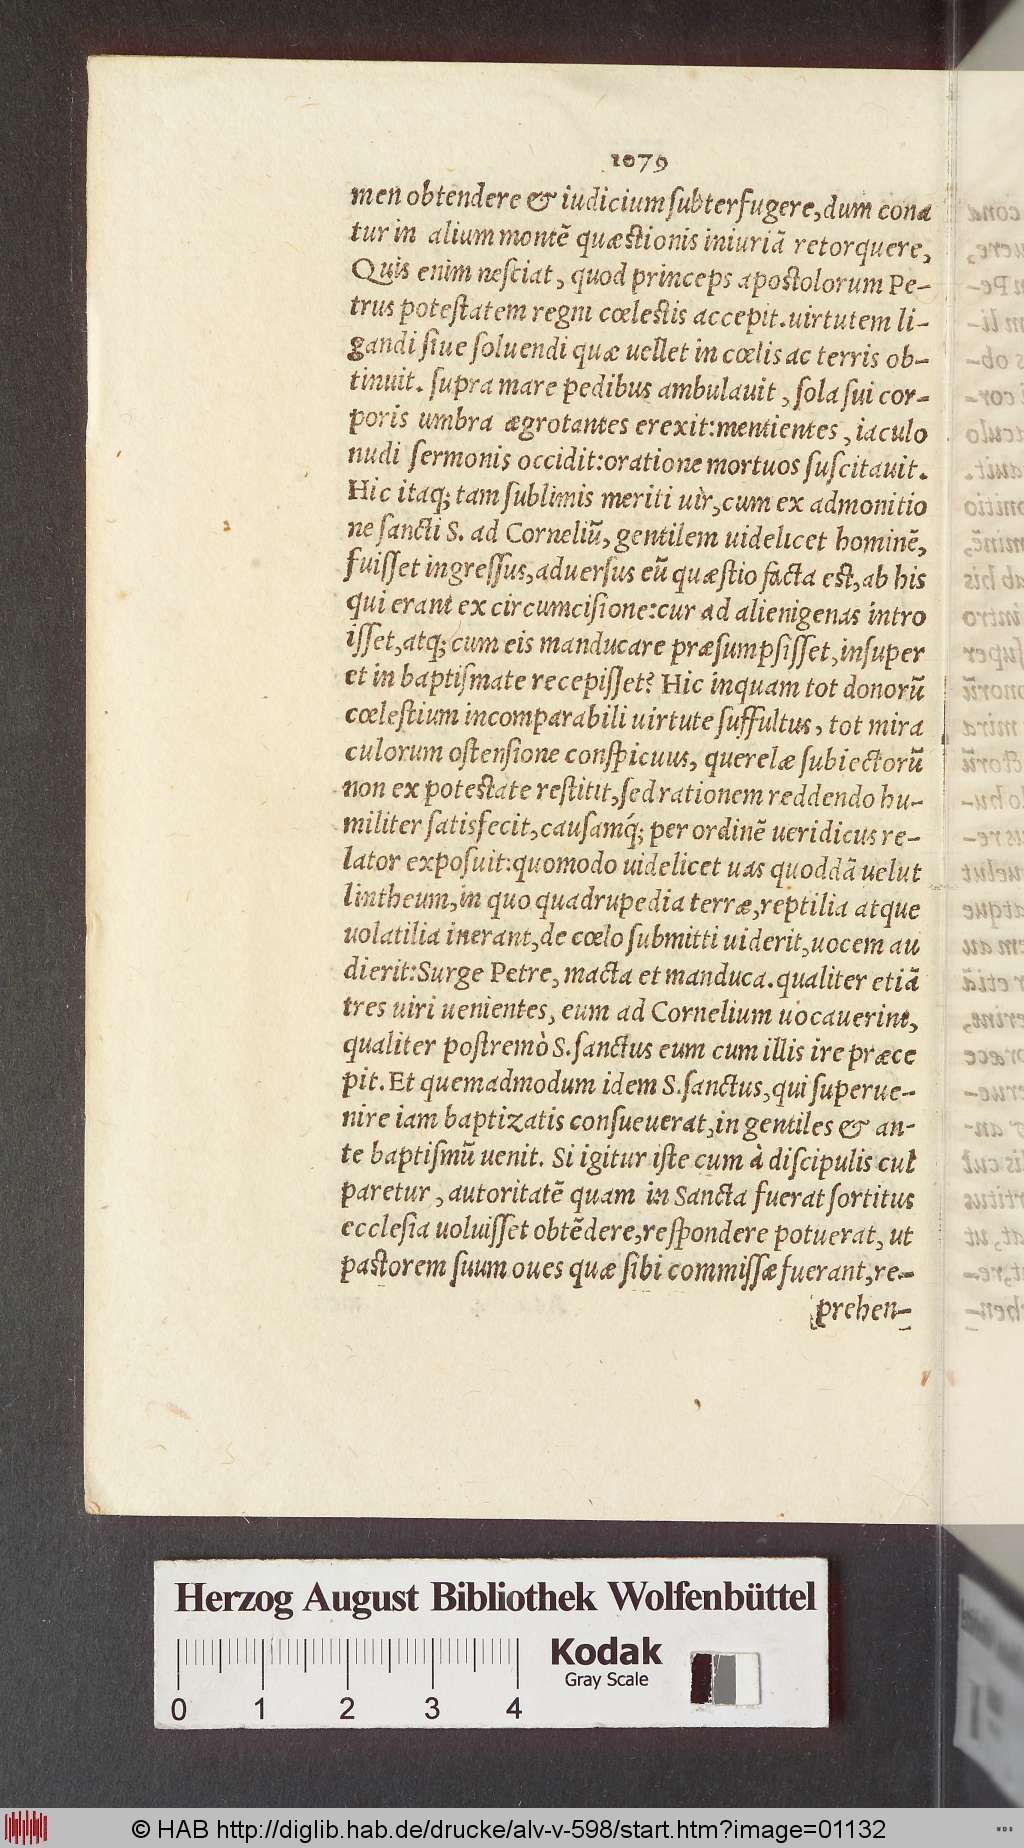 1079
men obtendere & iudicium ſubterfugere, dum cona
tur in alium montẽ quæſtionis iniuriã retorquere,
Quis enim neſciat, quod princeps apoſtolorum Pe-
trus poteſtatem regni cœleſtis accepit. uirtutem li-
gandi ſiue ſoluendi quæ uellet in cœlis ac terris ob-
tinuit. ſupra mare pedibus ambulauit, ſola ſui cor-
poris umbra ægrotantes erexit: mentientes, iaculo
nudi ſermonis occidit: oratione mortuos ſuſcitauit.
Hic itaq; tam ſublimis meriti uir, cum ex admonitio
ne ſancti S. ad Corneliũ, gentilem uidelicet hominẽ,
fuiſſet ingreſſus, aduerſus eũ quæſtio facta eſt, ab his
qui erant ex circumciſione: cur ad alienigenas intro
iſſet, atq; cum eis manducare præſumpſiſſet, inſuper
et in baptiſmate recepiſſet? Hic inquam tot donorũ
cœleſtium incomparabili uirtute ſuffultus, tot mira
culorum oſtenſione conſpicuus, querelæ ſubiectorũ
non ex poteſtate reſtitit, ſed rationem reddendo hu-
militer ſatisfecit, cauſamq́; per ordinẽ ueridicus re-
lator expoſuit: quomodo uidelicet uas quoddã uelut
lintheum, in quo quadrupedia terræ, reptilia atque
uolatilia inerant, de cœlo ſubmitti uiderit, uocem au
dierit: Surge Petre, macta et manduca. qualiter etiã
tres uiri uenientes, eum ad Cornelium uocauerint,
qualiter poſtremò S. ſanctus eum cum illis ire præce
pit. Et quemadmodum idem S. ſanctus, qui ſuperue-
nire iam baptizatis conſueuerat, in gentiles & an-
te baptiſmũ uenit. Si igitur iſte cum à diſcipulis cul
paretur, autoritatẽ quam in Sancta fuerat ſortitus
eccleſia uoluiſſet obtẽdere, reſpondere potuerat, ut
paſtorem ſuum oues quæ ſibi commiſſæ fuerant, re-
prehen-
Herzog August Bibliothek Wolfenbüttel
Kodak
Gray Scale
0 1 2 3 4
© HAB http://diglib.hab.de/drucke/alv-v-598/start.htm?image=01132